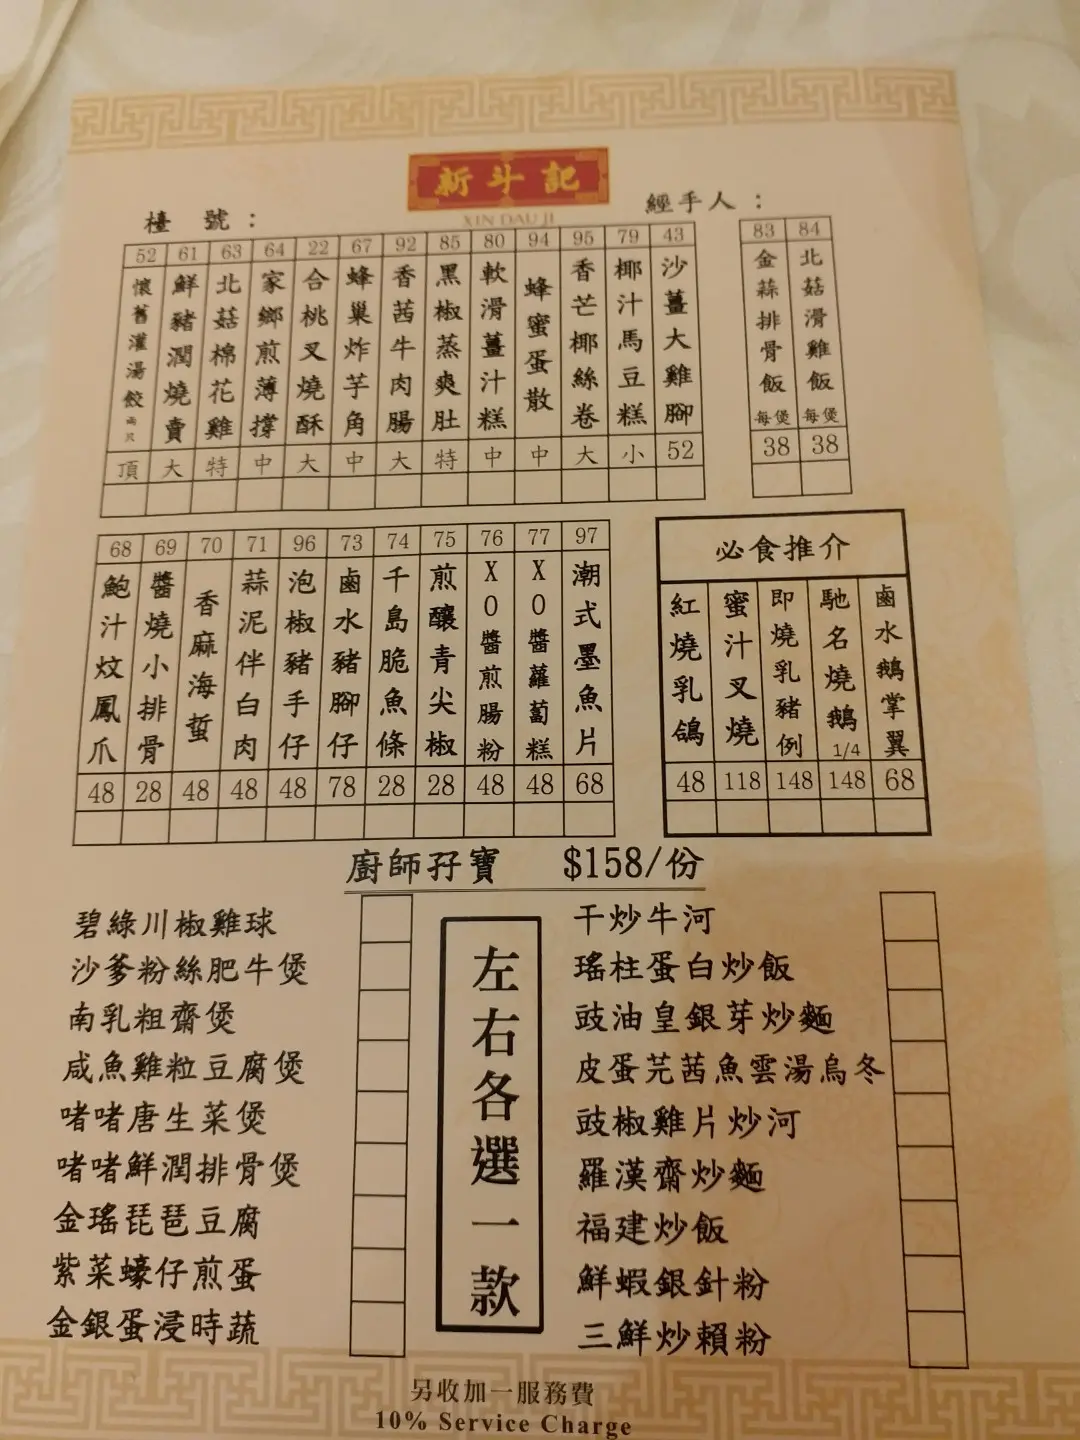 新斗記
XIN DAU JI
檯 號：
經手人：
52 懷舊灌湯餃 兩只 頂
61 鮮豬潤燒賣 大
63 北菇棉花雞 特
64 家鄉煎薄撐 中
22 合桃叉燒酥 大
67 蜂巢炸芋角 中
92 香茜牛肉腸 大
85 黑椒蒸爽肚 特
80 軟滑薑汁糕 中
94 蜂蜜蛋散 中
95 香芒椰絲卷 大
79 椰汁馬豆糕 小
43 沙薑大雞腳 52
83 金蒜排骨飯 每煲 38
84 北菇滑雞飯 每煲 38
68 鮑汁炆鳳爪 48
69 醬燒小排骨 28
70 香麻海蜇 48
71 蒜泥伴白肉 48
96 泡椒豬手仔 48
73 鹵水豬腳仔 78
74 千島脆魚條 28
75 煎釀青尖椒 28
76 XO醬煎腸粉 48
77 XO醬蘿蔔糕 48
97 潮式墨魚片 68
必食推介
紅燒乳鴿 48
蜜汁叉燒 118
即燒乳豬 例 148
馳名燒鵝 1/4 148
鹵水鵝掌翼 68
廚師孖寶 $158/份
左右各選一款
碧綠川椒雞球
沙爹粉絲肥牛煲
南乳粗齋煲
咸魚雞粒豆腐煲
啫啫唐生菜煲
啫啫鮮潤排骨煲
金瑤琵琶豆腐
紫菜蠔仔煎蛋
金銀蛋浸時蔬
干炒牛河
瑤柱蛋白炒飯
豉油皇銀芽炒麵
皮蛋芫茜魚雲湯烏冬
豉椒雞片炒河
羅漢齋炒麵
福建炒飯
鮮蝦銀針粉
三鮮炒賴粉
另收加一服務費
10% Service Charge